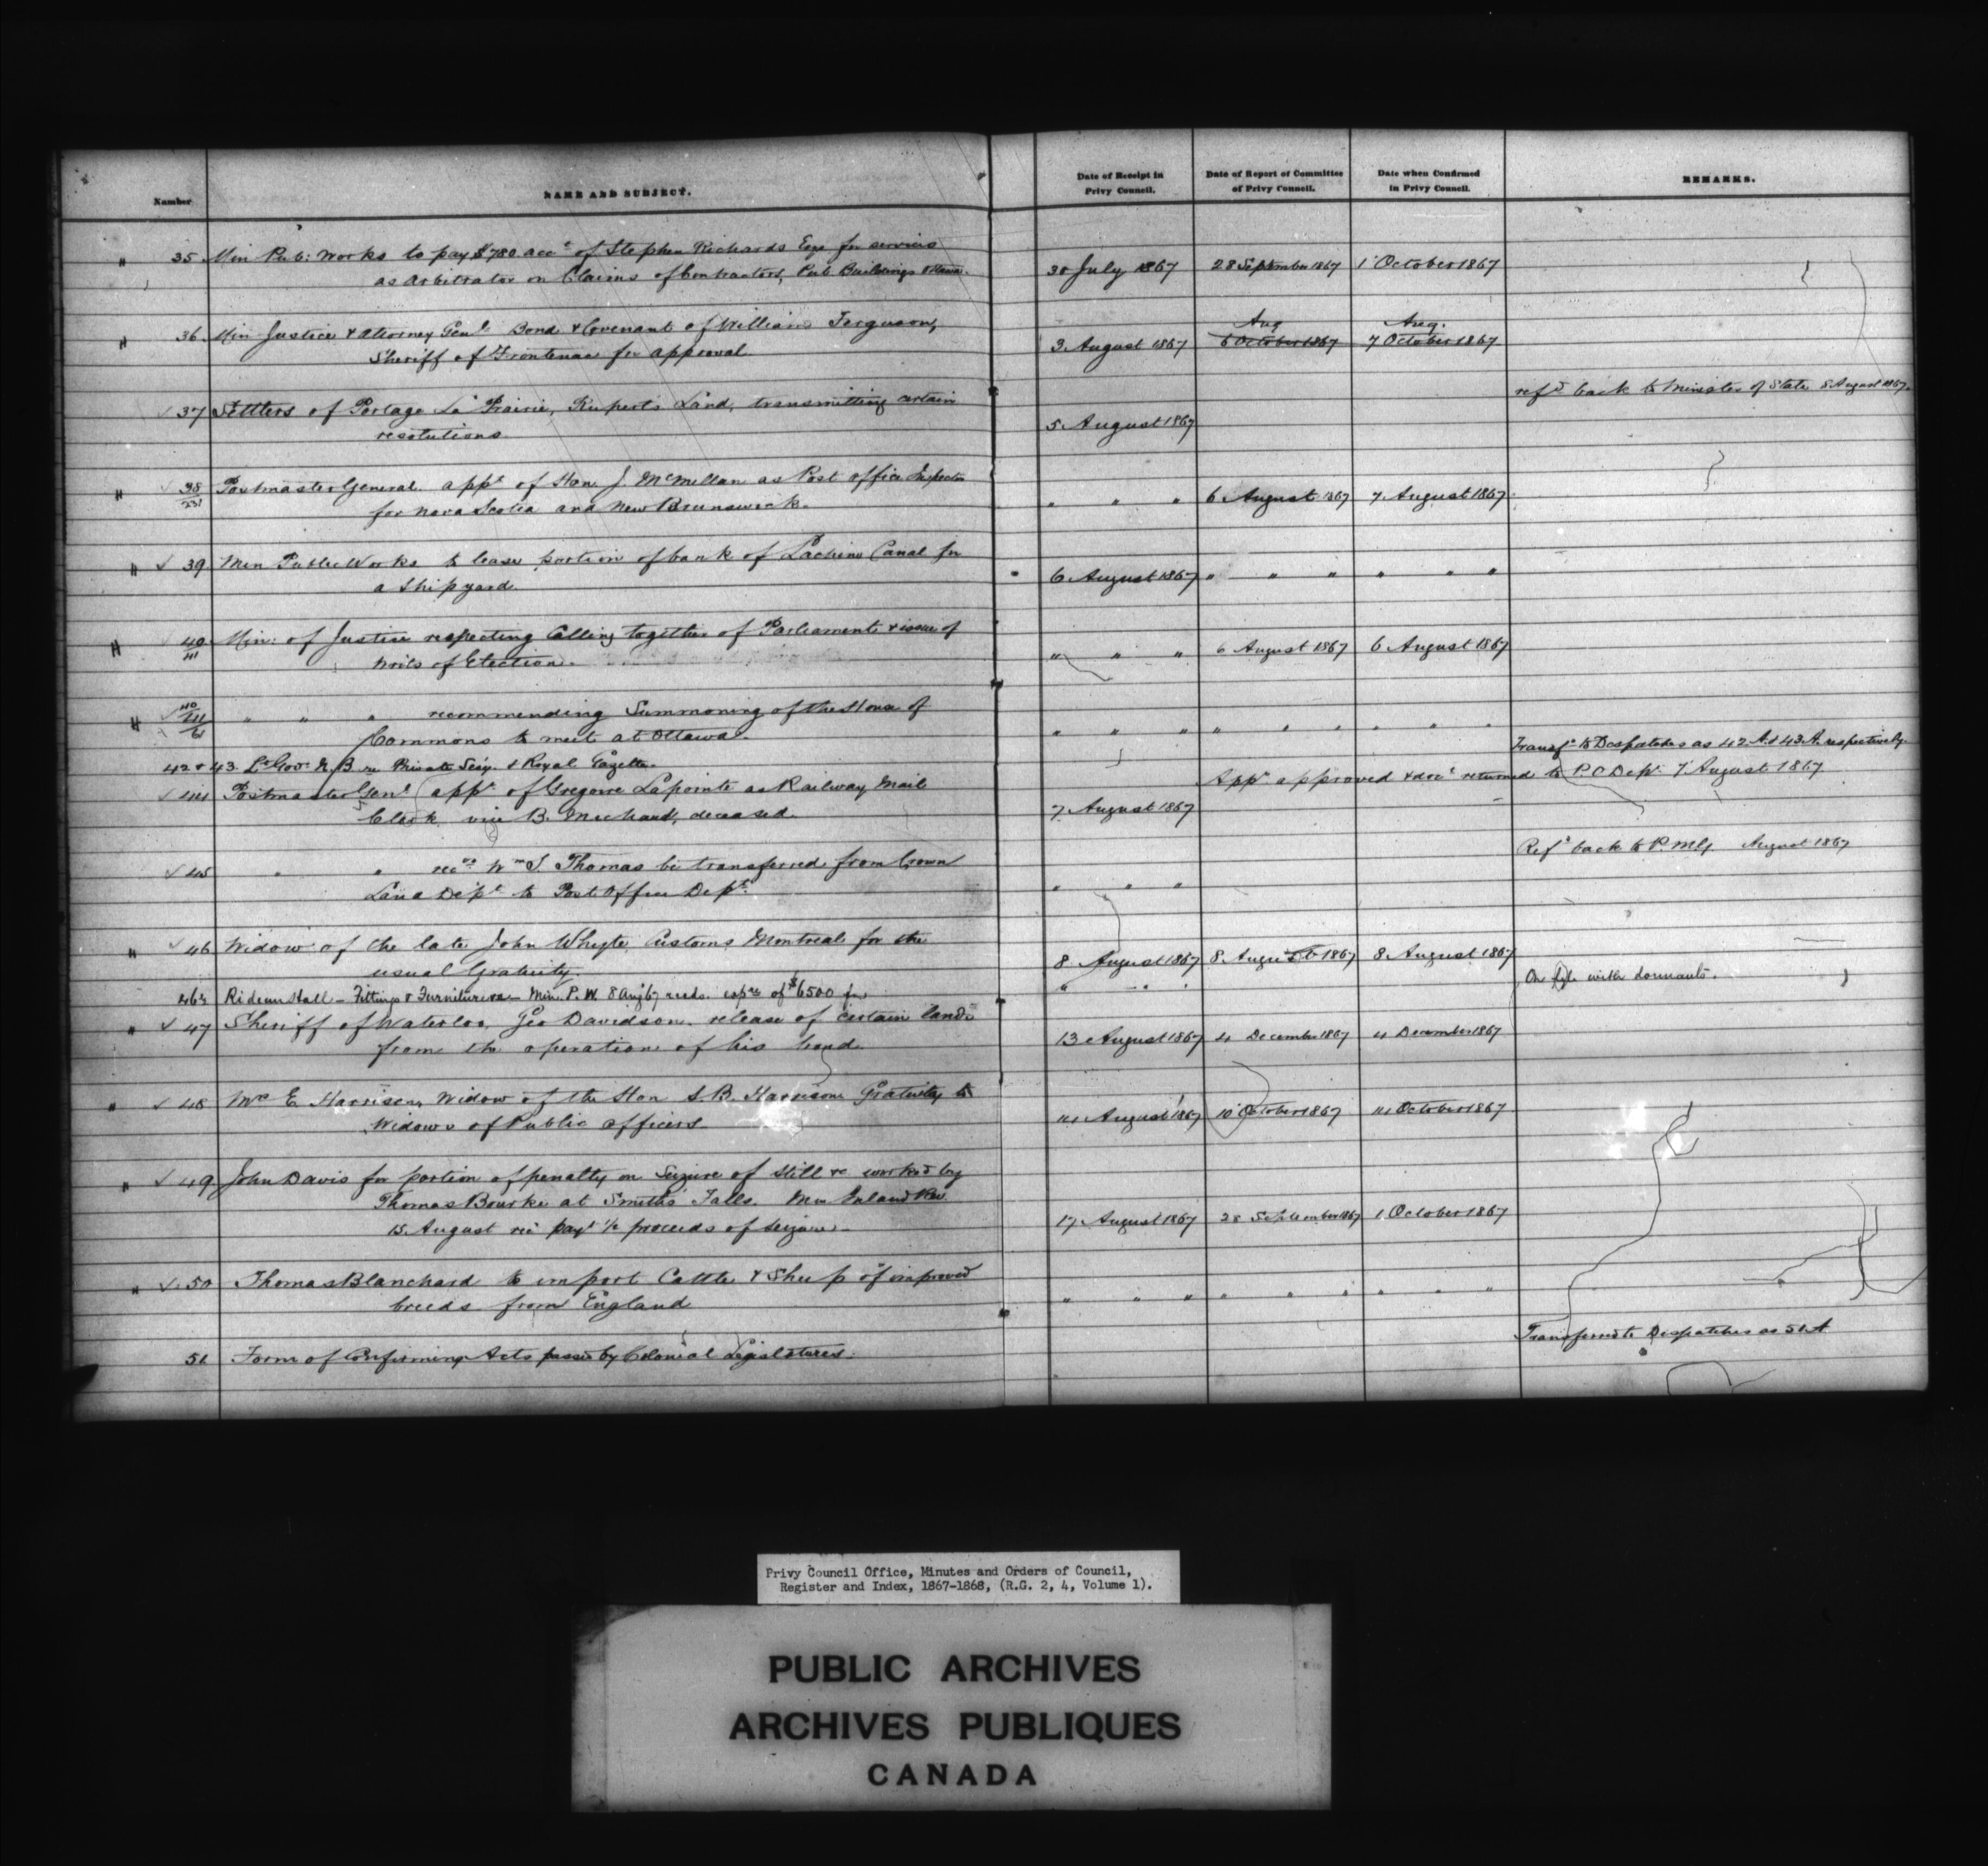 Number NAME AND SUBJECT. Date of Receipt in Privy Council. Date of Report of Committee of Privy Council. Date when Confirmed in Privy Council. REMARKS.
" 35 Min Pub: Works to pay $780 acct of Stephen Richards Esqe for services
as Arbitrator on Claims of Contractors, Pub Buildings Ottawa. 30 July 1867 28 September 1867 1 October 1867
" 36 Min Justice & Attorney Genl Bond & Covenant of William Ferguson, Aug Aug.
Sheriff of Frontenac for approval 3 August 1867 6 October 1867 7 October 1867
refd back to Minister of State 5 August 1867.
37 Settlers of Portage La Prairie, Ruperts Land, transmitting certain
resolutions. 5 August 1867
" 38/231 Postmaster General. appt of Hon. J. McMillan as Post Office Inspector
for Nova Scotia and New Brunswick. " " " 6 August 1867 7 August 1867
" ✓ 39 Min Public Works to lease portion of bank of Lachine Canal for
a Shipyard. 6 August 1867 " " " " " "
" 40/41 Min: of Justice respecting Calling together of Parliament & issue of
Writs of Election. " " " 6 August 1867 6 August 1867
" ✓ 40/41/61 " " " recommending Summoning of the House of
Commons to meet at Ottawa. " " " " " " " " "
Transfd to Despatches as 42 A & 43 A respectively.
42 & 43 Lt Govr N.B re Private Secy. & Royal Gazette.
Appt approved & doct returned to P.O Dept 7 August 1867
✓ 44 Postmaster Genl appt of Gregoire Lapointe as Railway Mail
Clerk vice B. Mechant, deceased. 7 August 1867
Refd back to P.M.G. August 1867
✓ 45 " " recds Wm S. Thomas be transferred from Crown
Land Dept to Post Office Dept. " " "
" ✓ 46 Widow of the late John Whyte Customs Montreal for the
usual Gratuity. 8 August 1867 8 August 1867 8 August 1867
46½ Rideau Hall - Fittings & Furniture - Min. P.W. 8 Aug 67 recds. expre of $6500 for On file with dormants.
" ✓ 47 Sheriff of Waterloo, Geo Davidson. release of certain lands
from the operation of his bond. 13 August 1867 4 December 1867 4 December 1867
" ✓ 48 Mrs E Harrison, Widow of the Hon S.B. Harrison Gratuity to
Widows of Public officers 14 August 1867 10 October 1867 14 October 1867
" ✓ 49 John Davis for portion of penalty on Seizure of still &c worked by
Thomas Bourke at Smiths Falls. Min Inland Rev.
15 August recs payt ½ proceeds of seizure - 17 August 1867 28 September 1867 1 October 1867
" ✓ 50 Thomas Blanchard to import Cattle & Sheep of improved
breeds from England " " " " " " " " "
Transferred to Despatches as 51 A
51 Form of Confirming Acts passed by Colonial Legislatures.
Privy Council Office, Minutes and Orders of Council,
Register and Index, 1867-1868, (R.G. 2, 4, Volume 1).
PUBLIC ARCHIVES
ARCHIVES PUBLIQUES
CANADA